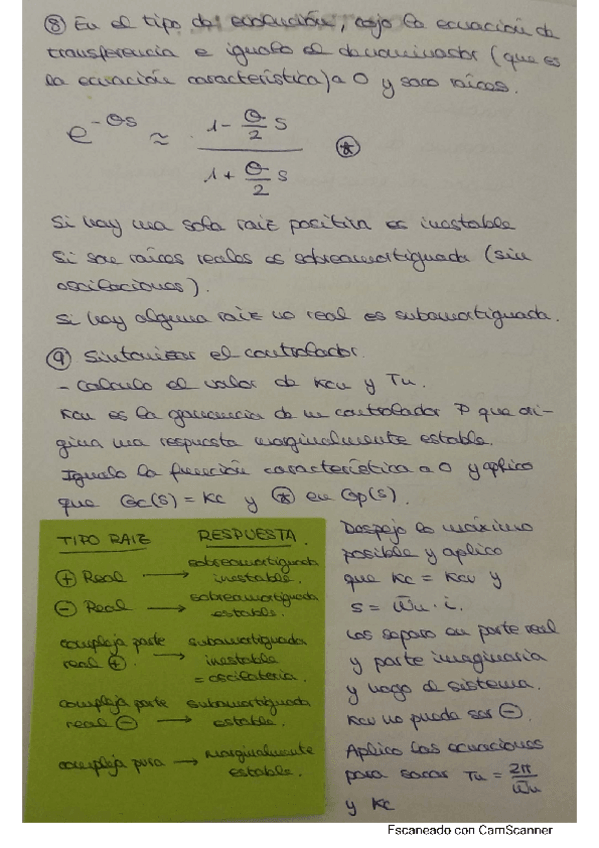 ⑧ En el tipo de evolución, cojo la ecuación de
transferencia e igualo el denominador (que es
la ecuación característica) a 0 y saco raíces.
e^-θs ≈ (1 - θ/2 s) / (1 + θ/2 s) ⊛
Si hay una sola raiz positiva es inestable
Si son raíces reales es sobreamortiguada (sin
oscilaciones).
Si hay alguna raiz no real es subamortiguada.
⑨ Sintonizar el controlador.
- Calculo el valor de Kcu y Tu.
Kcu es la ganancia de un controlador P que ori-
gina una respuesta marginalmente estable.
Igualo la función característica a 0 y aplico
que Gc(s) = Kc y ⊛ en Gp(s).
TIPO RAIZ RESPUESTA.
⊕ Real → sobreamortiguada
inestable.
⊖ Real → sobreamortiguada
estable.
compleja parte
real ⊕. → subamortiguada
inestable
= oscilatoria.
compleja parte
real ⊖ → subamortiguada
estable.
compleja pura → marginalmente
estable.
Despejo lo máximo
posible y aplico
que Kc = Kcu y
s = ω̄u · i.
Los separo en parte real
y parte imaginaria
y hago el sistema.
Kcu no puede ser ⊖.
Aplico las ecuaciones
para sacar Tu = 2π/ω̄u
y Kc
Escaneado con CamScanner